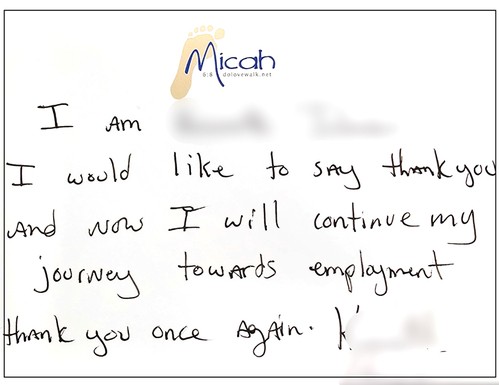 Micah
6:8 dolovewalk.net
I Am
I would like to say thank you
And now I will continue my
journey towards employment
thank you once Again.